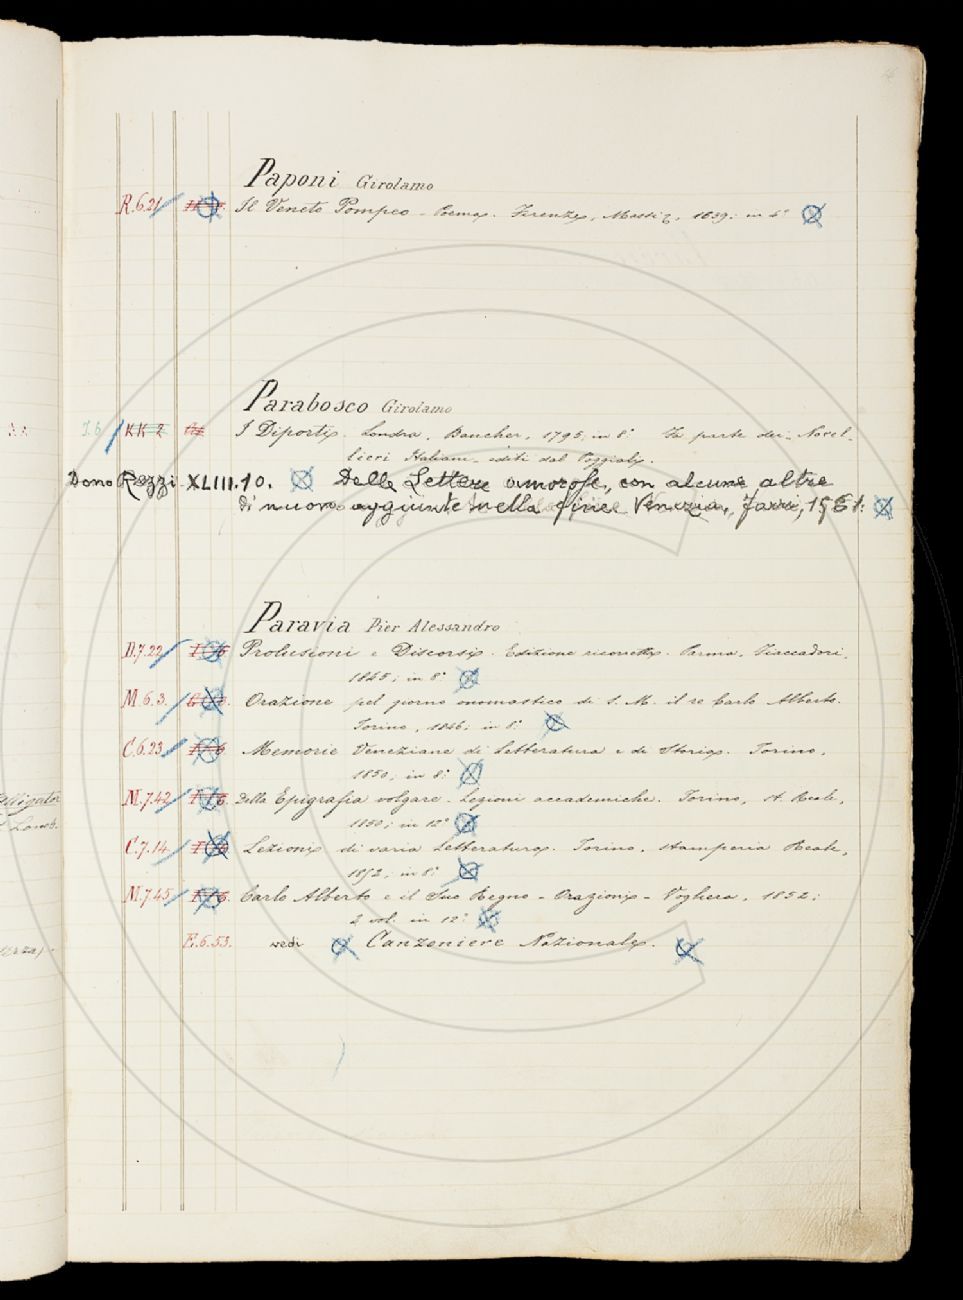 Paponi Girolamo
R.6.21 Il Veneto Pompeo - Poema. Firenze, 1839; in 4°
Parabosco Girolamo
I.6 KK 2 I Diporti. Londra, Bancher, 1795, in 8° Fa parte dei Novel-
lieri Italiani editi dal Poggiali.
Dono Rezzi XLIII.10. Delle Lettere amorose, con alcune altre
di nuovo aggiunte nella fine Venezia, Farri, 1561.
Paravia Pier Alessandro
D.7.22 Prolusioni e Discorsi. Edizione ricorretta. Parma, Fiaccadori,
1845; in 8°
M.6.3. Orazione pel giorno onomastico di S. M. il re Carlo Alberto.
Torino, 1846; in 8°
C.6.23 Memorie Veneziane di Letteratura e di Storia. Torino,
1850; in 8°
M.7.42 Della Epigrafia volgare - Lezioni accademiche. Torino, St. Reale,
1850; in 12°
C.7.14. Lezioni di varia Letteratura. Torino, stamperia Reale,
1852; in 8°
M.7.45 Carlo Alberto e il Suo Regno - Orazioni - Voghera, 1852;
2 vol. in 12°
E.6.53. vedi Canzoniere Nazionale.